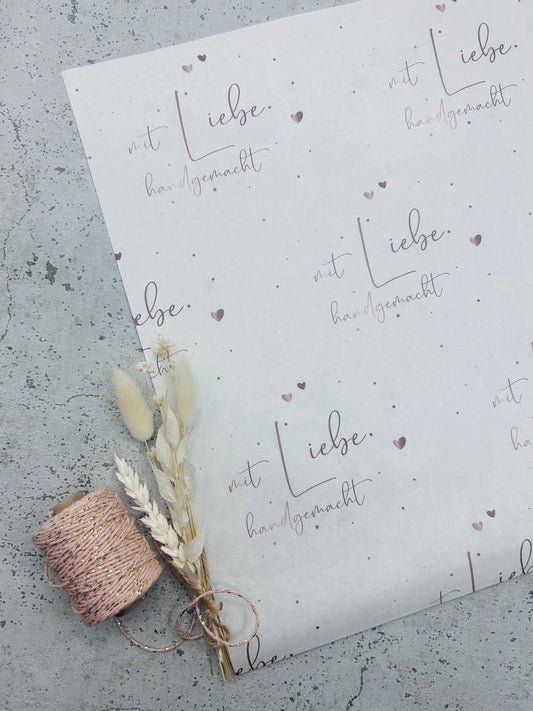 mit Liebe.
handgemacht
mit Liebe.
handgemacht
mit Liebe.
handgemacht
ebe.
cht
mit Liebe.
handgemacht
mit
ha
Lieb
ebe.